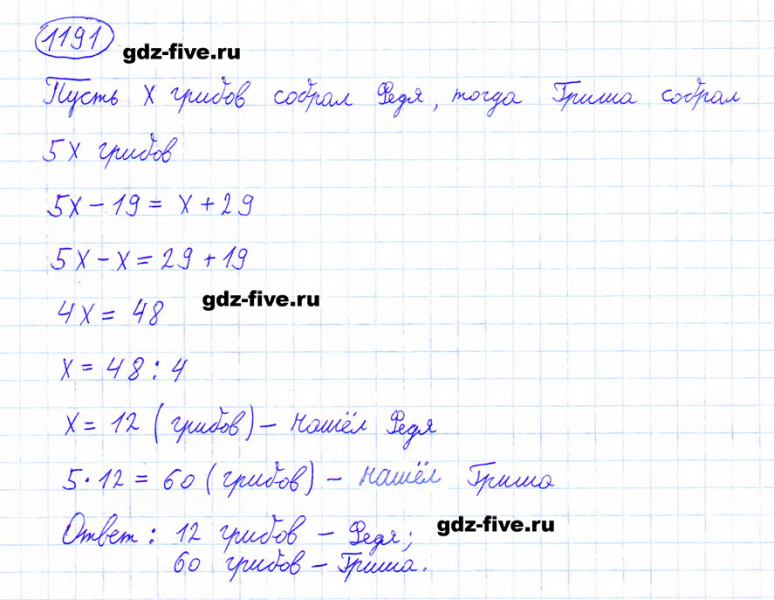 1191 gdz-five.ru
Пусть x грибов собрал Федя, тогда Гриша собрал
5x грибов
5x - 19 = x + 29
5x - x = 29 + 19
4x = 48 gdz-five.ru
x = 48 : 4
x = 12 (грибов) - нашёл Федя
5 · 12 = 60 (грибов) - нашёл Гриша
Ответ: 12 грибов - Федя; gdz-five.ru
60 грибов - Гриша.